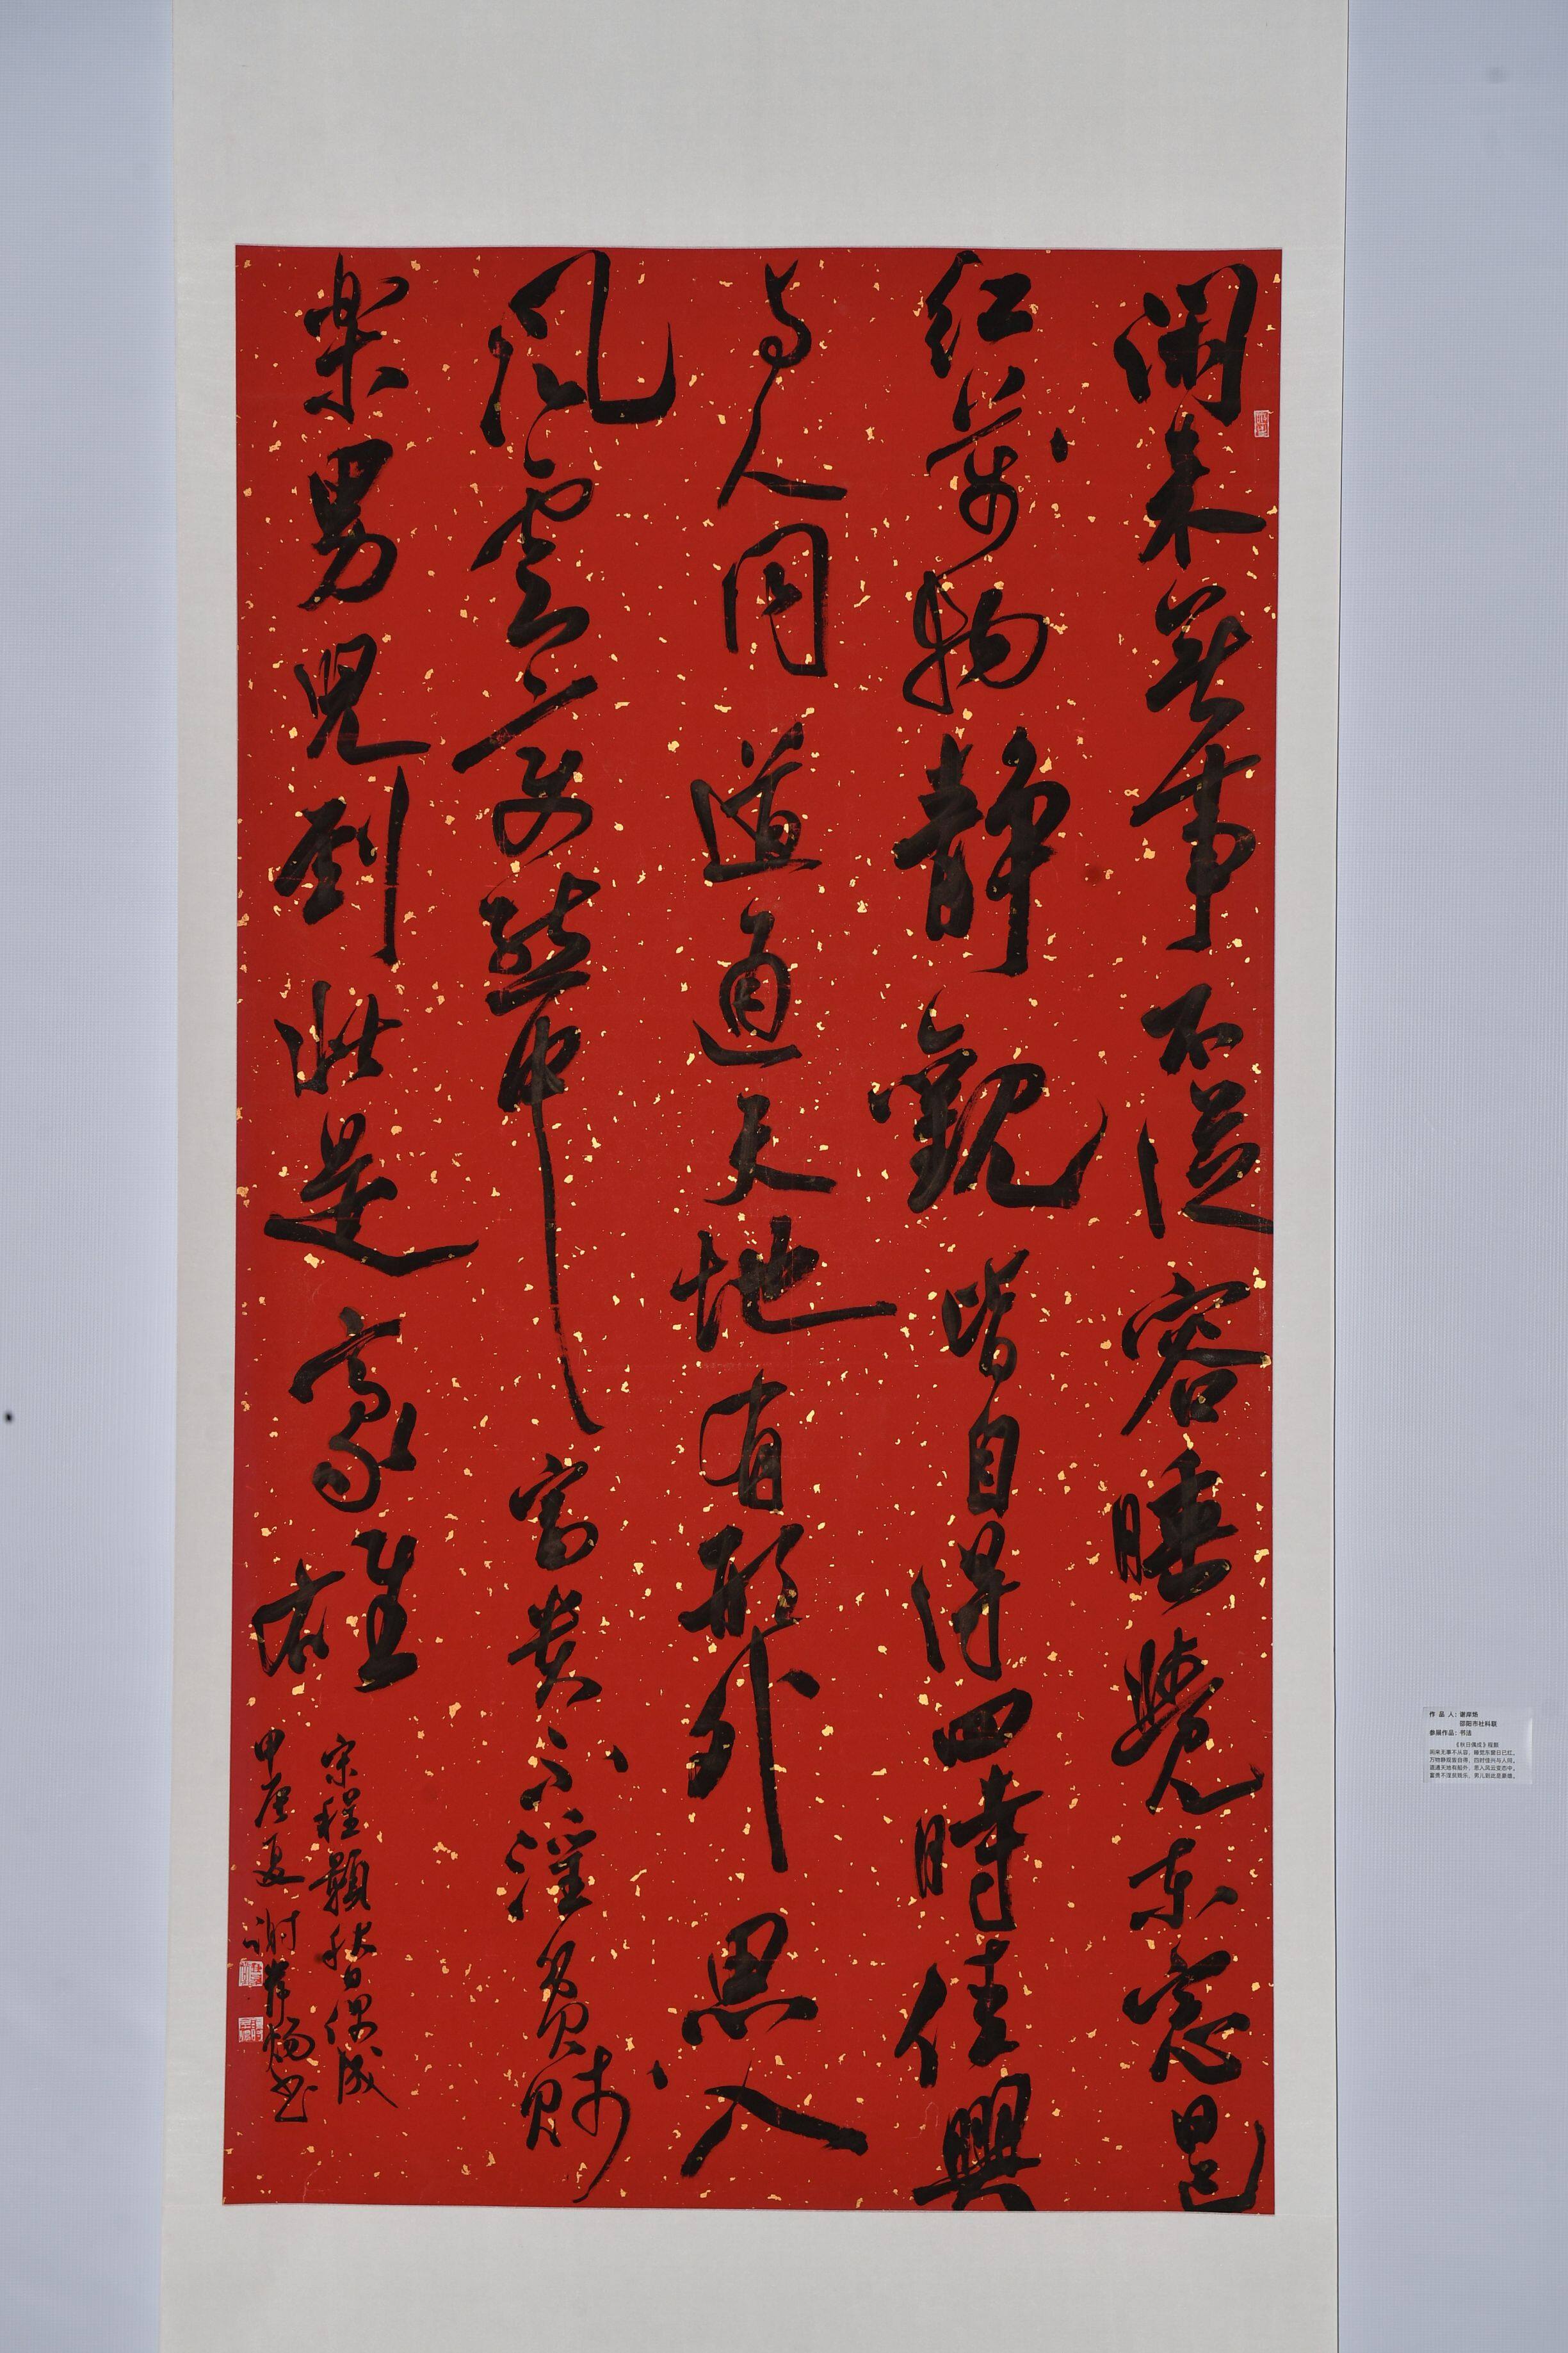 闲来無事不從容睡覺东窓日已
红萬物静觀皆自得四時佳興
与人同道通天地有形外思入
风雲变態中富贵不淫貧賤
楽男兒到此是豪雄
宋程顥秋日偶成
甲辰夏谢岸炀书
作 品 人：谢岸炀
邵阳市社科联
参展作品：书法
《秋日偶成》程颢
闲来无事不从容，睡觉东窗日已红。
万物静观皆自得，四时佳兴与人同。
道通天地有形外，思入风云变态中。
富贵不淫贫贱乐，男儿到此是豪雄。